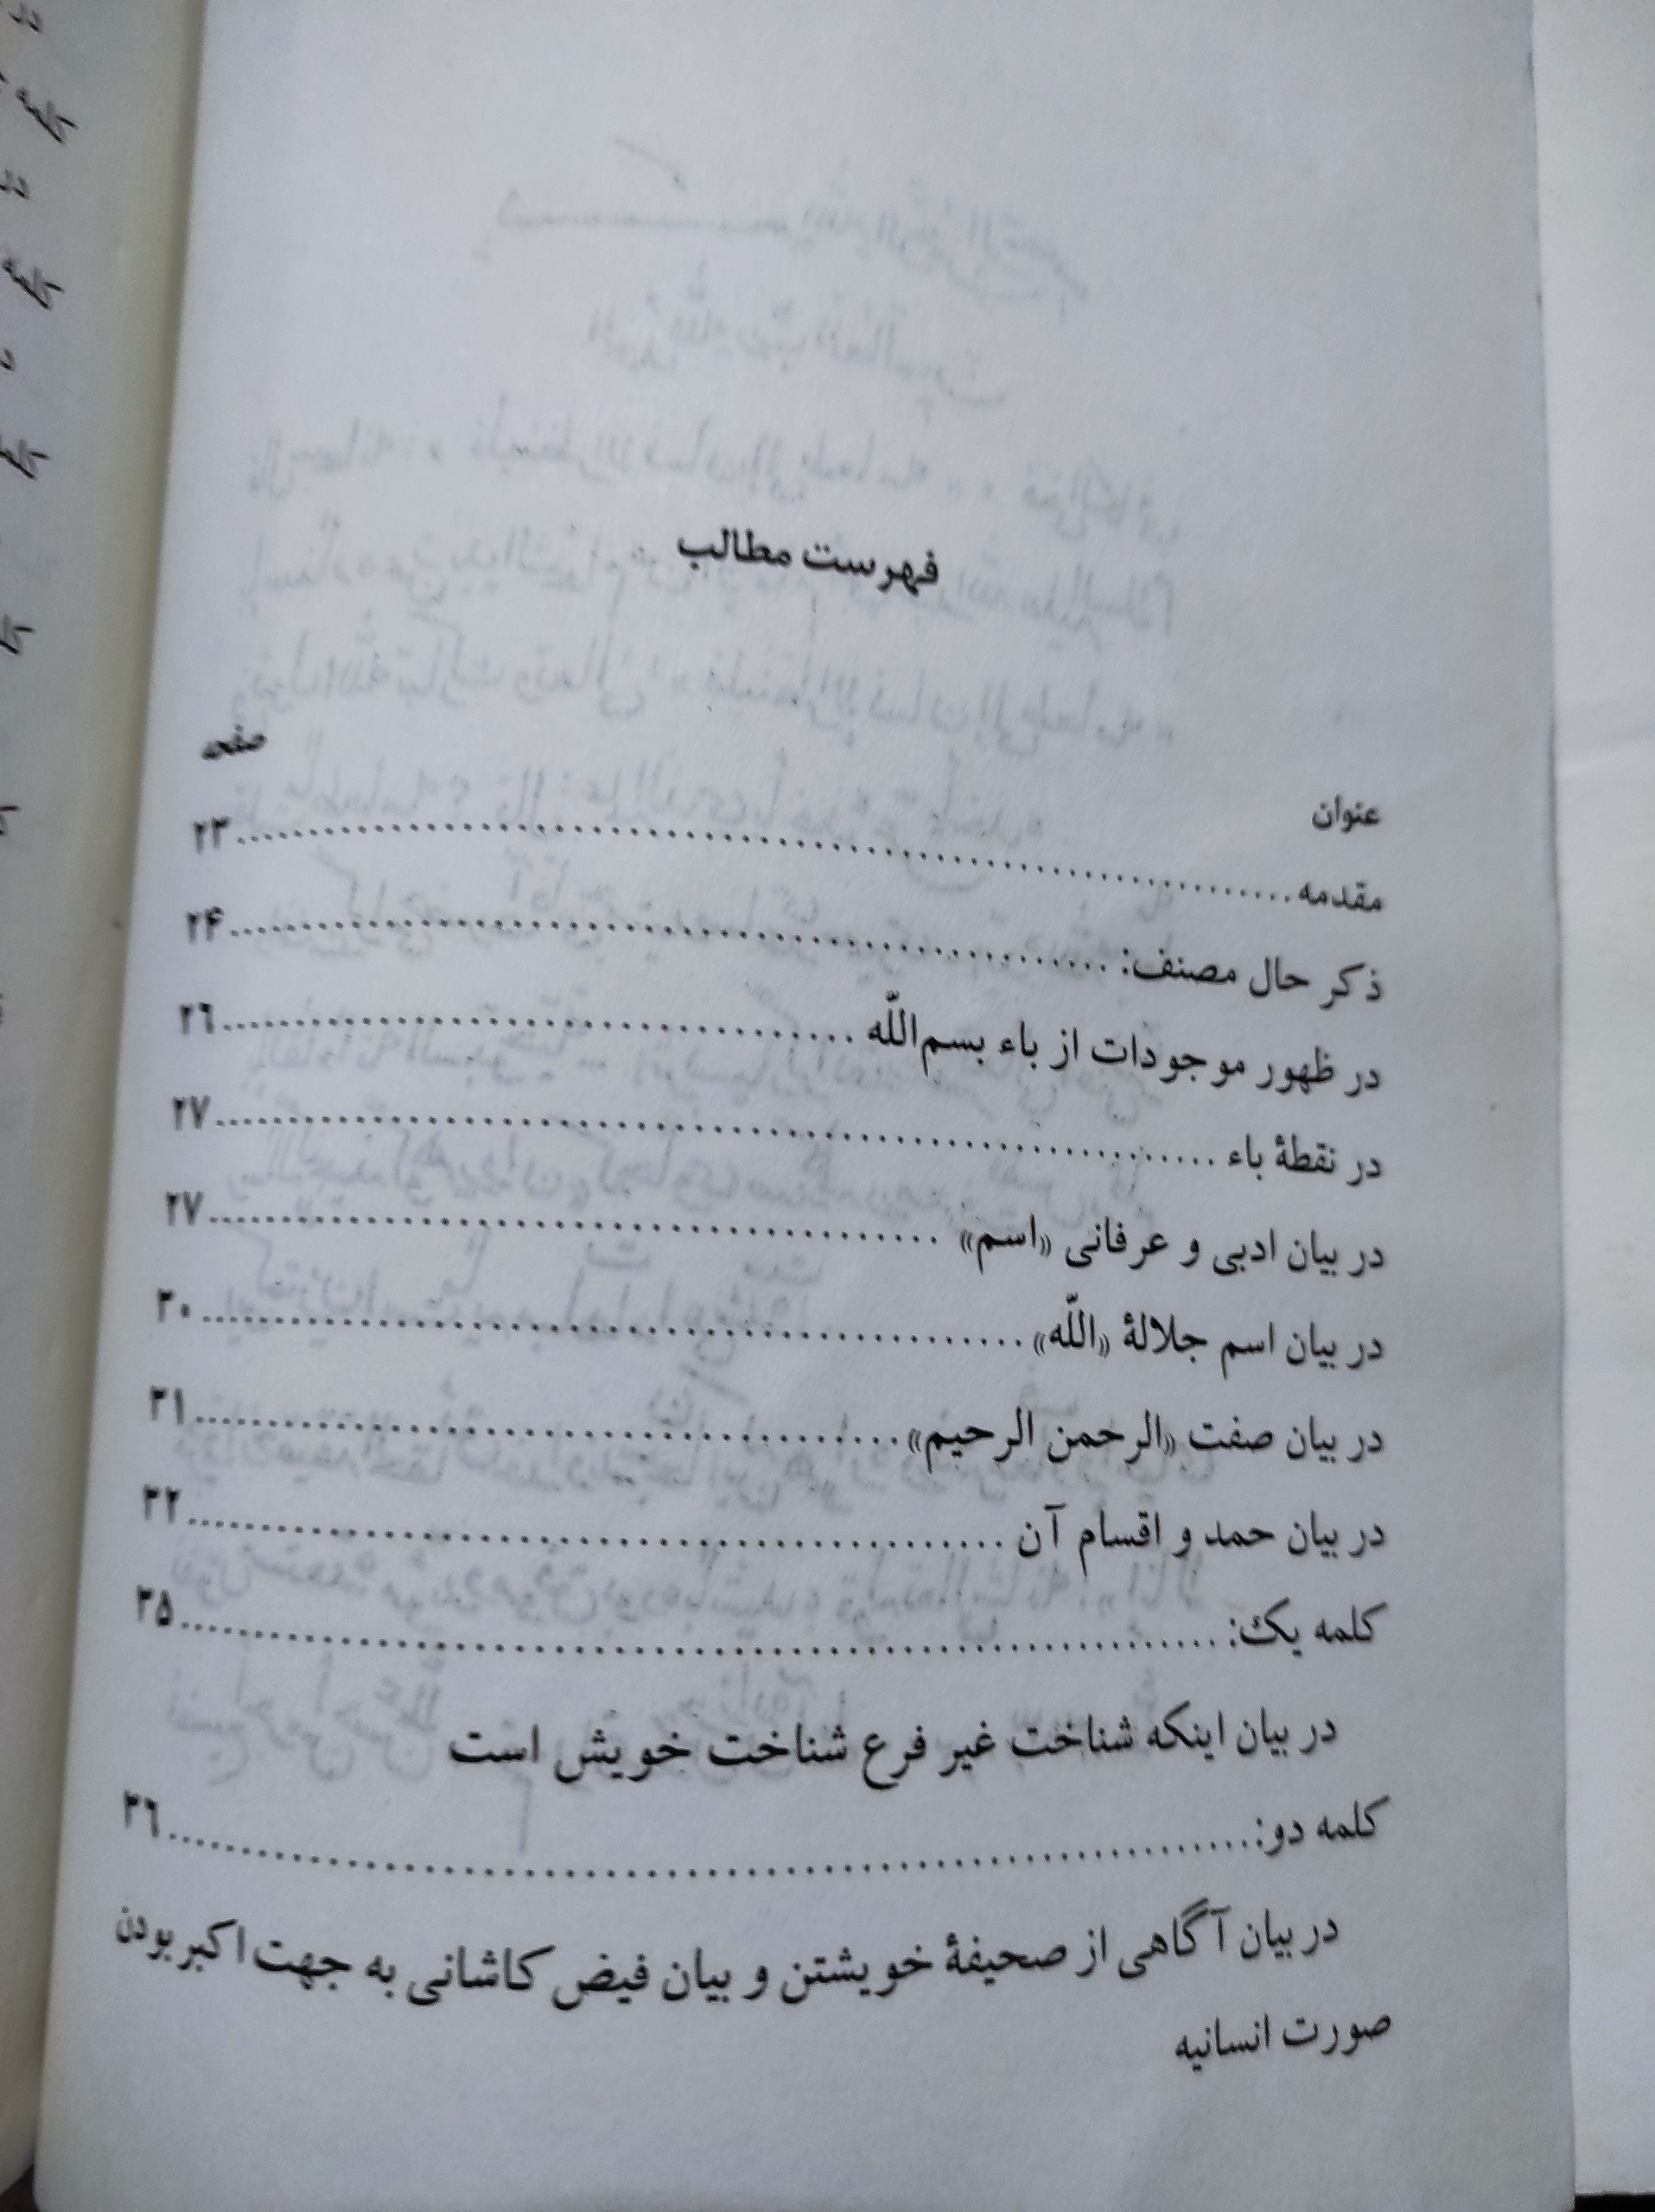 فهرست مطالب
عنوان صفحه
مقدمه ........................................ ۲۳
ذکر حال مصنف: ........................................ ۲۴
در ظهور موجودات از باء بسم‌اللّه ........................................ ۲۶
در نقطهٔ باء ........................................ ۲۷
در بیان ادبی و عرفانی «اسم» ........................................ ۲۷
در بیان اسم جلالهٔ «اللّه» ........................................ ۳۰
در بیان صفت «الرحمن الرحیم» ........................................ ۳۱
در بیان حمد و اقسام آن ........................................ ۳۲
کلمه یک: ........................................ ۳۵
در بیان اینکه شناخت غیر فرع شناخت خویش است
کلمه دو: ........................................ ۳۶
در بیان آگاهی از صحیفهٔ خویشتن و بیان فیض کاشانی به جهت اکبر بودن
صورت انسانیه